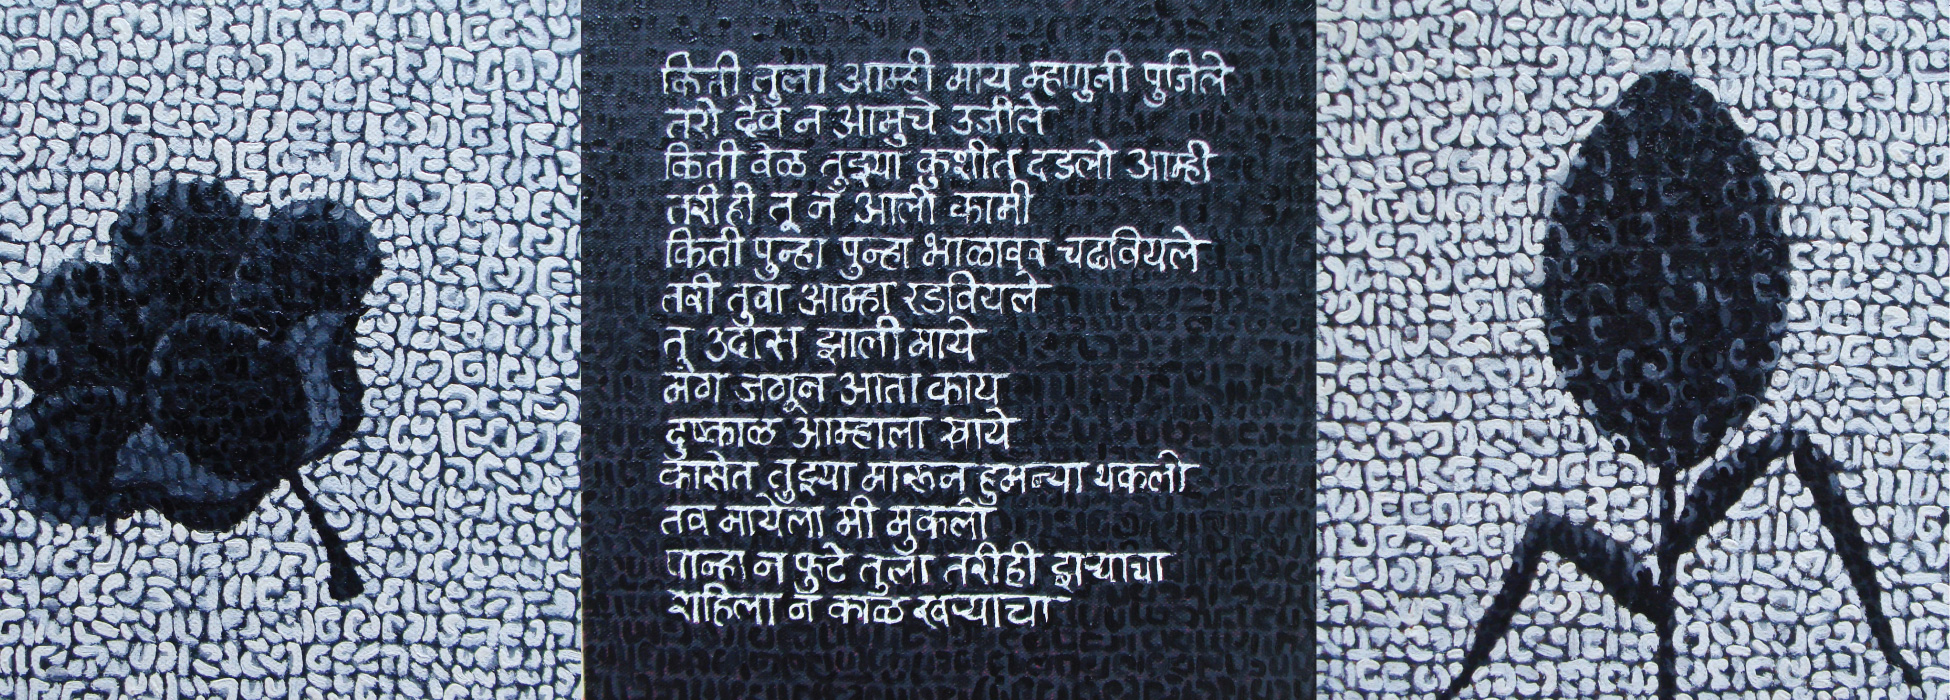 किती तुला आम्ही माय म्हणुनी पुजिले
तरी दैव न आमुचे उजीले
किती वेळ तुझ्या कुशीत दडलो आम्ही
तरीही तू न आली कामी
किती पुन्हा पुन्हा भाळावर चढवियले
तरी तुवा आम्हा रडवियले
तू उदास झाली माये
मग जगून आता काय
दुष्काळ आम्हाला खाये
कासेत तुझ्या मारून हुमन्या थकलो
तव मायेला मी मुकलो
पान्हा न फुटे तुला तरीही झऱ्याचा
राहिला न काळ खऱ्याचा